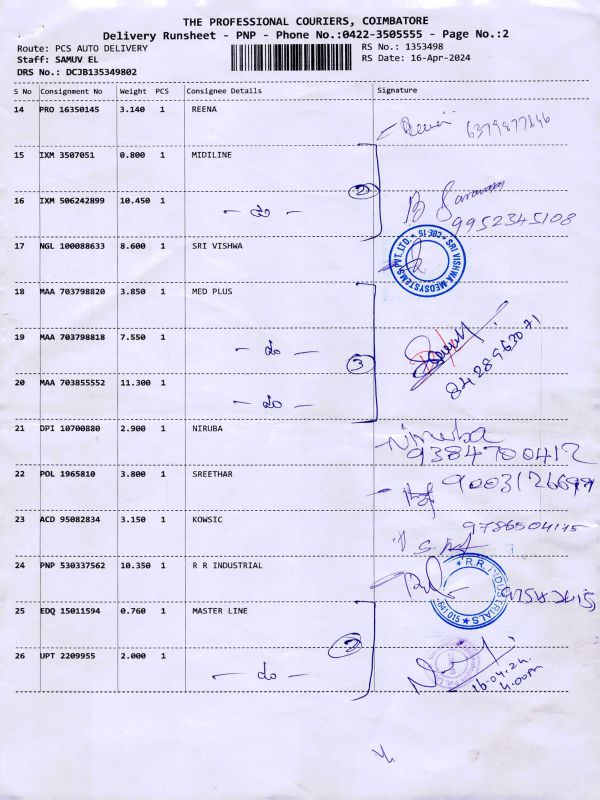 THE PROFESSIONAL COURIERS, COIMBATORE
Delivery Runsheet - PNP - Phone No.:0422-3505555 - Page No.:2
Route: PCS AUTO DELIVERY
RS No.: 1353498
Staff: SAMUV EL
RS Date: 16-Apr-2024
DRS No.: DCJB135349802
S No Consignment No Weight PCS Consignee Details Signature
14 PRO 16350145 3.140 1 REENA
15 IXM 3507051 0.800 1 MIDILINE
2
16 IXM 506242899 10.450 1
- do -
9952345108
17 NGL 100088633 8.600 1 SRI VISHWA
SRI VISHWA MEDSYSTEMS PVT. LTD. CBE-15
18 MAA 703798820 3.850 1 MED PLUS
19 MAA 703798818 7.550 1
- do -
3
8428963071
20 MAA 703855552 11.300 1
- do -
21 DPI 10700880 2.900 1 NIRUBA
Niruba
9384700412
22 POL 1965810 3.800 1 SREETHAR
23 ACD 95082834 3.150 1 KOWSIC
9786504175
24 PNP 530337562 10.350 1 R R INDUSTRIAL
R.R. INDUSTRIALS 641 015
25 EDQ 15011594 0.760 1 MASTER LINE
2
26 UPT 2209955 2.000 1
- do -
16.04.24
4.00pm